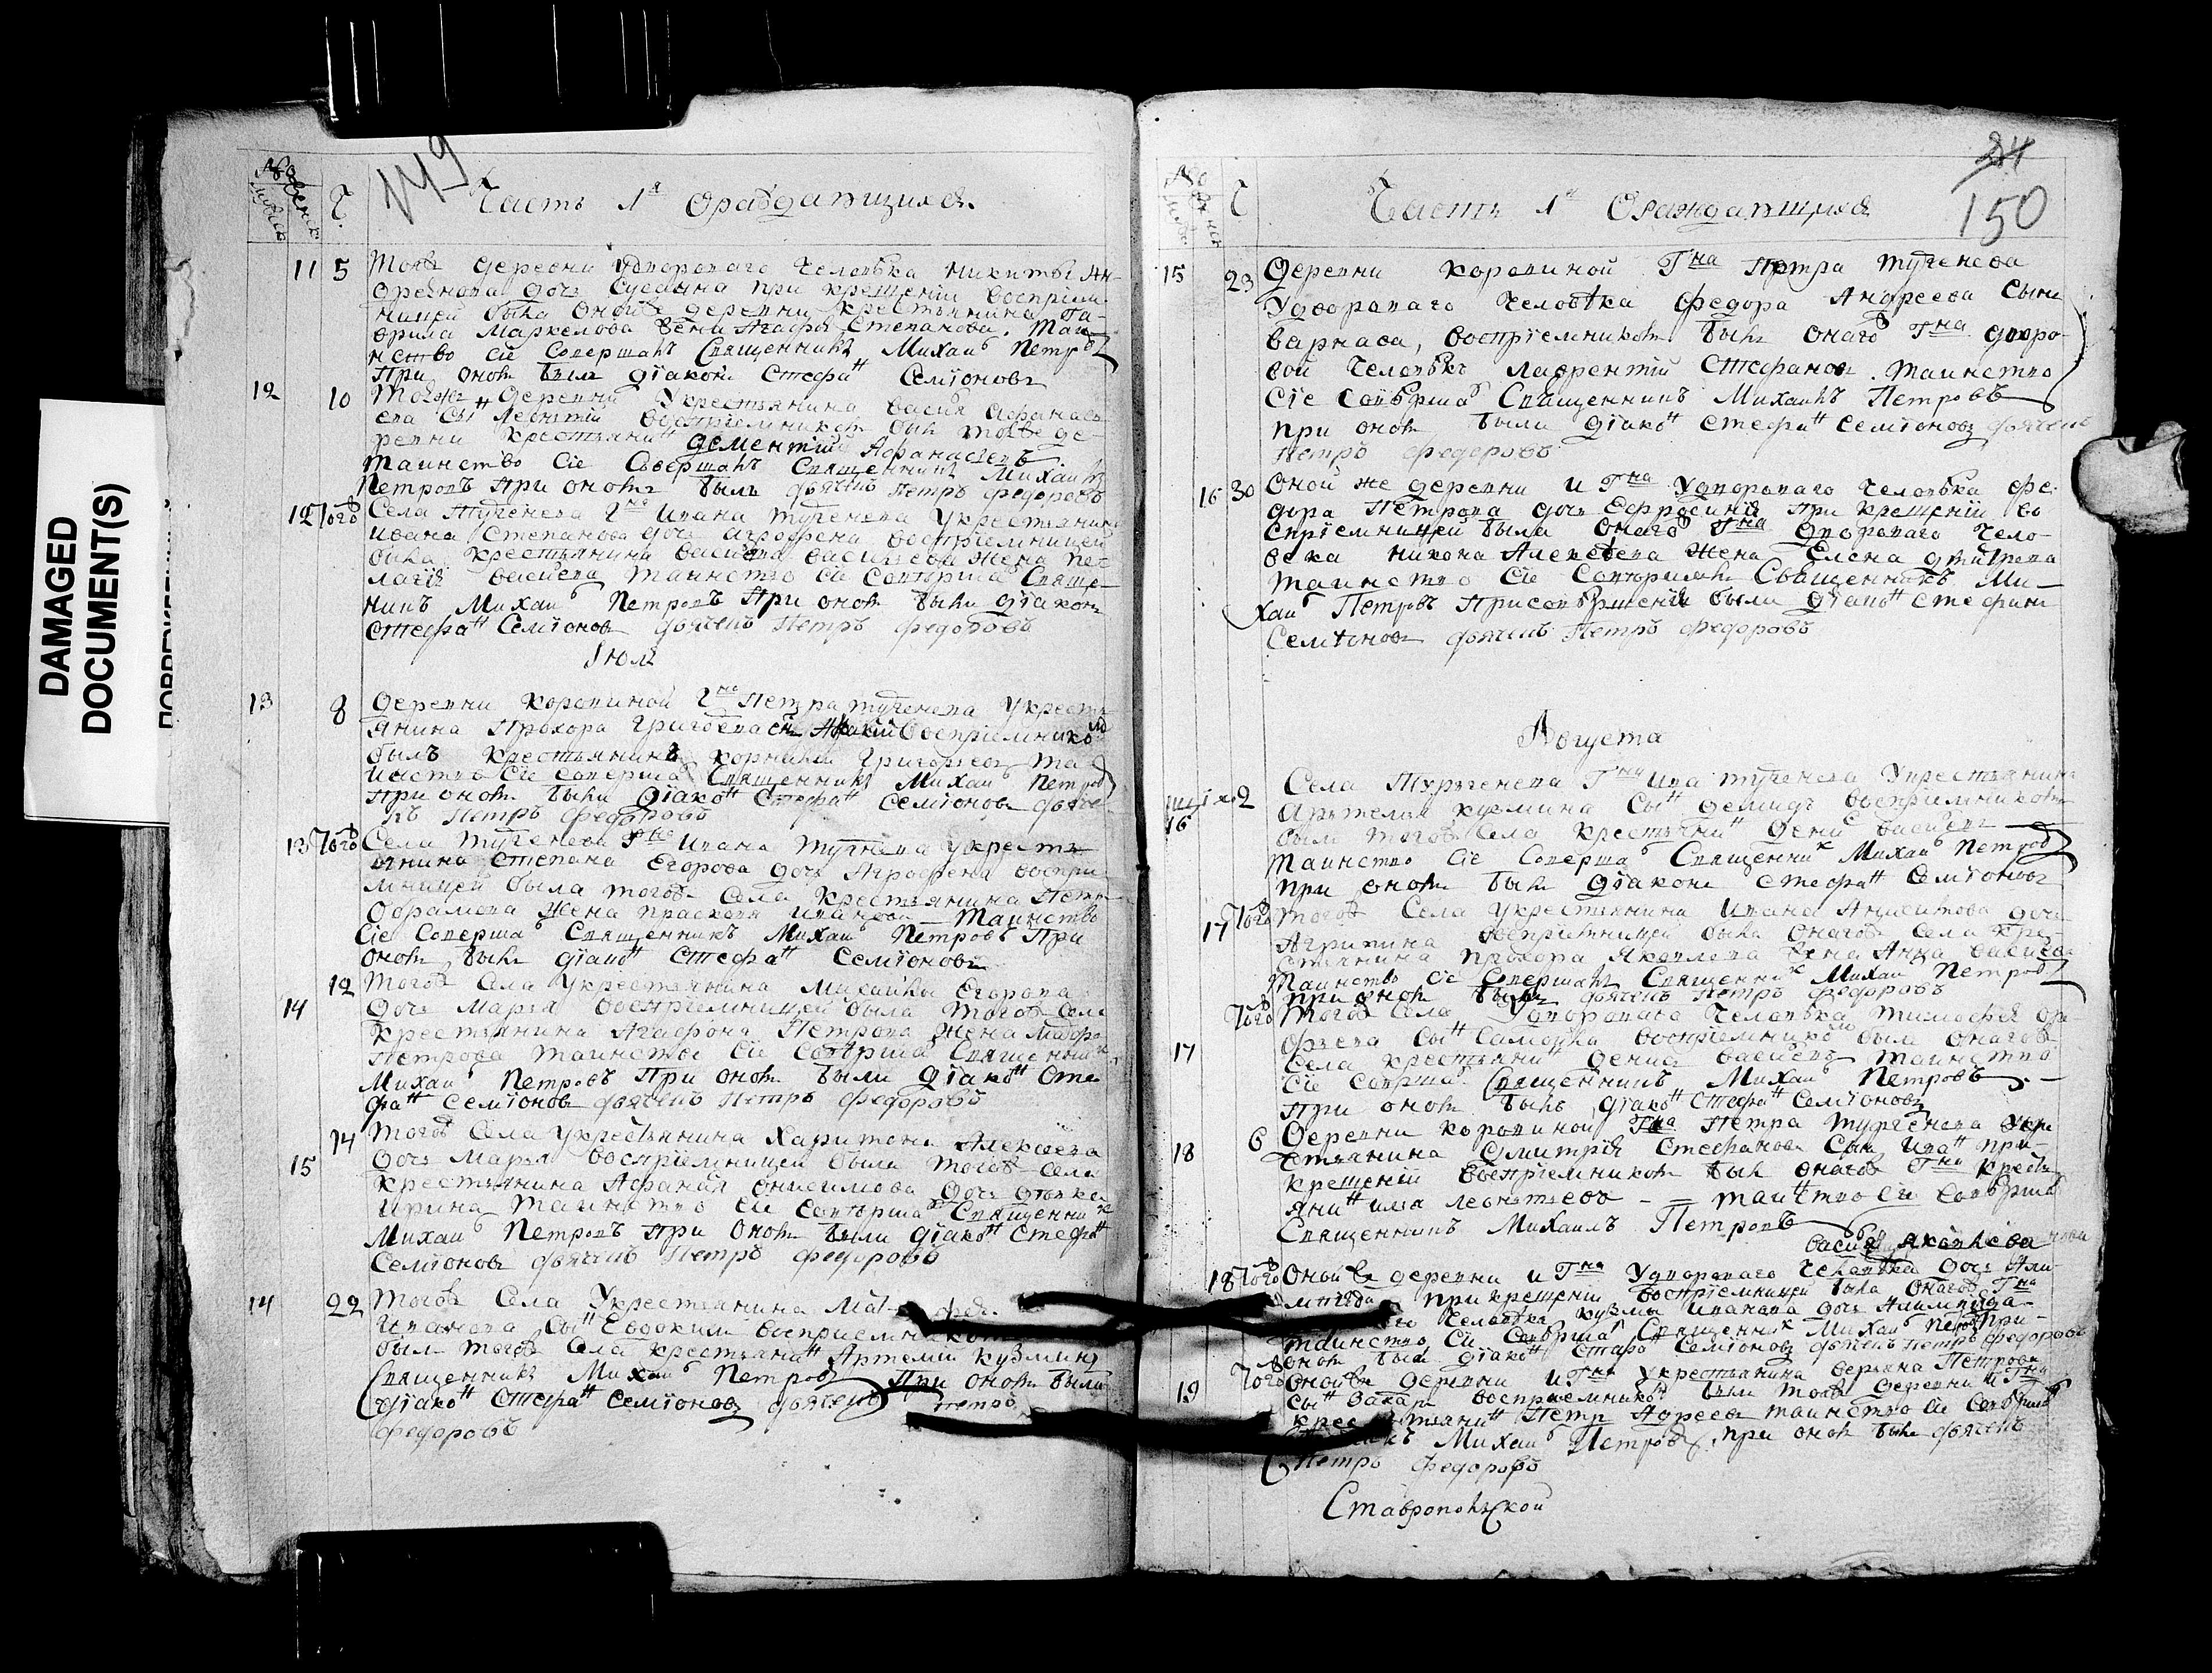 DAMAGED
DOCUMENT(S)
149
Часть 1я ораждающихся
11 5 Тояже деревни Удвороваго человѣка Никиты Ан-
дреянова дочь Сусанна при крещеніи воспріем-
ницей была оной деревни крестьянина Га-
врила Маркелова жена Агафья Степанова. Таи-
нство сіе совершалъ Священникъ Михаиъ Петровъ
При ономъ былъ діаконъ Стефанъ Семіоновъ
12 10 Тояже деревни Укрестьянина Васил Афанась
ева сынъ Леонтій воспріемникомъ былъ тояже де-
ревни крестьянинъ Дементій Афанасьевъ
Таинство сіе совершалъ Священникъ Михаилъ
Петровъ при ономъ былъ дьячекъ Петръ Федоровъ
12 Тогожъ Села Тургенева Гна Ивана Тургенева Укрестьянина
Ивана Степанова дочь Агрофена воспріемницей
была крестьянина Василья Васильева жена Пе
лагія Васильева Таинство сіе совершалъ Свяще-
нникъ Михаилъ Петровъ при ономъ были діаконъ
Стефанъ Семіоновъ дьячекъ Петръ Федоровъ
Іюля
13 8 Деревни Коровиной Гна Петра Тургенева Укресть
янина Прохора Григорьева сынъ воспріемникомъ
былъ крестьянинъ Корнилій Григорьевъ Та-
инство сіе совершалъ Священникъ Михаилъ Петровъ
При ономъ были діаконъ Стефанъ Семіоновъ дьяче
къ Петръ Федоровъ
13 Тогожъ Села Тургенева Гна Ивана Тургенева Укресть
янина Степана Егорова дочь Агрофена воспріе
мницей была тогожъ Села крестьянина Петра
Абрамова жена Прасковя Иванова Таинство
Сіе совершалъ Священникъ Михаилъ Петровъ При
ономъ были діаконъ Стефанъ Семіоновъ
14 12 Тогожъ Села Укрестьянина Михайлы Егорова
дочь Марья воспріемницей была тогожъ Села
крестьянина Агафона Петрова жена
Петрова таинство сіе совершалъ Священникъ
Михаилъ Петровъ При ономъ были діаконъ Сте
фанъ Семіоновъ дьячекъ Петръ Федоровъ
15 14 Тогожъ Села Укрестьянина Харитона Алексеева
дочь Марья воспріемницей была тогожъ Села
крестьянина Афанася Онисимова дочь девка
Ирина таинство сіе совершалъ Священникъ
Михаилъ Петровъ при ономъ были діаконъ Стефанъ
Семіоновъ дьячекъ Петръ Федоровъ
14 22 Тогожъ Села Укрестьянина
Иванова сынъ Евдокимъ воспріемникомъ
былъ тогожъ Села крестьянинъ Артемій Кузминъ
Священникъ Михаилъ Петровъ При ономъ были
діаконъ Стефанъ Семіоновъ дьячекъ Петръ
Федоровъ
150
Часть 1я Ораждающихся
15 23 Деревни Коровиной Гна Петра Тургенева
Удвороваго человѣка Федора Андреева сынъ
Варнава, воспріемникомъ былъ онаго Гна дворо-
вой человѣкъ Лаврентій Стефановъ. Таинство
сіе совершалъ Священникъ Михаилъ Петровъ
при ономъ были діаконъ Стефанъ Семіоновъ дьячекъ
Петръ Федоровъ
16 30 Оной же деревни и Гна Удвороваго человѣка Фе-
дора Петрова дочь Ефросинія при крещеніи во
спріемницей была онаго Гна двороваго чело-
века Никона Алексѣева жена Елена Дмитрева
таинство сіе совершилъ Священникъ Ми-
хаилъ Петровъ при совершеніи были діаконъ Стефанъ
Семіоновъ дьячекъ Петръ Федоровъ
Августа
16 2 Села Тургенева Гна Ива Тургенева Укрестьянина
Артемья Кузмина сынъ Демидъ воспріемникомъ
былъ тогожъ Села крестьянинъ Денис Васильевъ
Таинство сіе совершалъ Священникъ Михаилъ Петровъ
при ономъ были діаконъ Стефанъ Семіоновъ
17 Тогожъ Тогожъ Села Укрестьянина Ивана дочь
Агрипина воспріемницей была онагожъ Села кре-
стьянина Прохора Яковлева жена Анна Васильева
Таинство сіе совершалъ Священникъ Михаилъ Петровъ
при ономъ былъ дьячекъ Петръ Федоровъ
17 Тогожъ Тогожъ Села Удвороваго человѣка Тимофея
сынъ Самойла воспріемникомъ былъ онагожъ
Села крестьянинъ Денис Васильевъ таинство
сіе совершалъ Священникъ Михаилъ Петровъ
При ономъ былъ діаконъ Стефанъ Семіоновъ
18 6 Деревни Коровиной Гна Петра Тургенева Укре
стьянина Дмитрія Стефанова сынъ Иванъ при
крещеніи воспріемникомъ былъ онагожъ Гна кресть
янинъ Илья Леонтьевъ - = таинство сіе совершалъ
Священникъ Михаилъ Петровъ
Василья Яковлева
18 Тогожъ Онойже деревни и Гна Удвороваго человѣка дочь
при крещеніи воспріемницей была онагожъ Гна
человѣка Кузмы Иванова дочь
таинство сіе совершалъ Священникъ Михаилъ Петровъ при
ономъ были діаконъ Стефанъ Семіоновъ дьячекъ Петръ Федоровъ
19 Тогожъ Онойже деревни и Гна Укрестьянина Петрова
сынъ Захаръ воспріемникомъ былъ тояже деревни и Гна
крестьянинъ Петръ таинство сіе совершалъ
Михаилъ Петровъ, при ономъ былъ дьячекъ
Петръ Федоровъ
Ставропольской